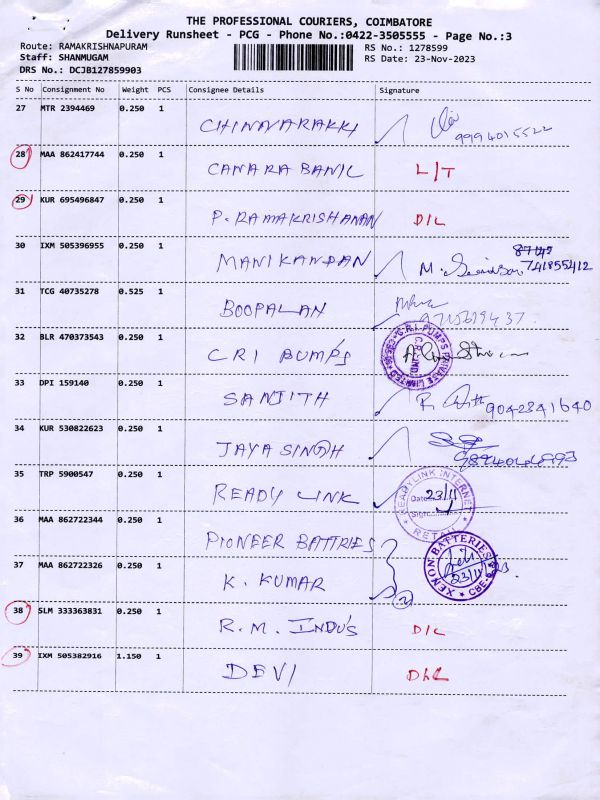 THE PROFESSIONAL COURIERS, COIMBATORE
Delivery Runsheet - PCG - Phone No.:0422-3505555 - Page No.:3
Route: RAMAKRISHNAPURAM RS No.: 1278599
Staff: SHANMUGAM RS Date: 23-Nov-2023
DRS No.: DCJB127859903
S No Consignment No Weight PCS Consignee Details Signature
27 MTR 2394469 0.250 1
CHINNARAKKI 9994015522
28 MAA 862417744 0.250 1
CANARA BANK L/T
29 KUR 695496847 0.250 1
P. RAMAKRISHANAN D/L
30 IXM 505396955 0.250 1
MANIKANDAN M. 741855412
31 TCG 40735278 0.525 1
BOOPALAN
32 BLR 470373543 0.250 1
CRI BUMPS C.R.I. PUMPS PRIVATE LIMITED
33 DPI 159140 0.250 1
SANJITH R. 9042841640
34 KUR 530822623 0.250 1
JAYA SINGH
35 TRP 5900547 0.250 1
READY LINK READYLINK INTERNET
Date 23/11
Sign
RETAIL
36 MAA 862722344 0.250 1
PIONEER BATTRIES XENON BATTERIES
37 MAA 862722326 0.250 1
K. KUMAR 2 23/11 CBE-6
38 SLM 333363831 0.250 1
R.M. INDUS D/L
39 IXM 505382916 1.150 1
DEVI DLL